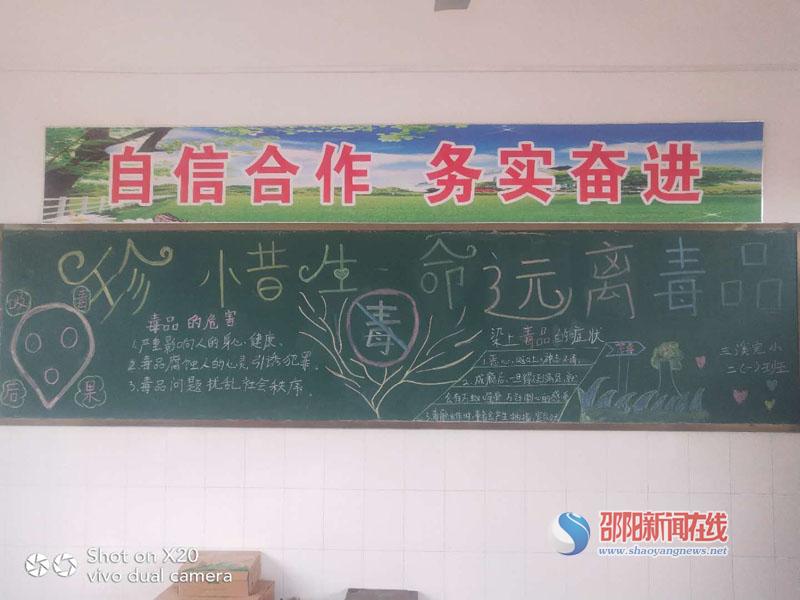 自信合作 务实奋进
珍惜生命远离毒品
吸毒
后果
毒品的危害
1.严重影响人的身心健康.
2.毒品腐蚀人的心灵,引诱犯罪.
3.毒品问题扰乱社会秩序.
毒
染上毒品的症状
2.成瘾后,一旦
二(一)班
邵阳新闻在线
www.shaoyangnews.net
Shot on X20
vivo dual camera